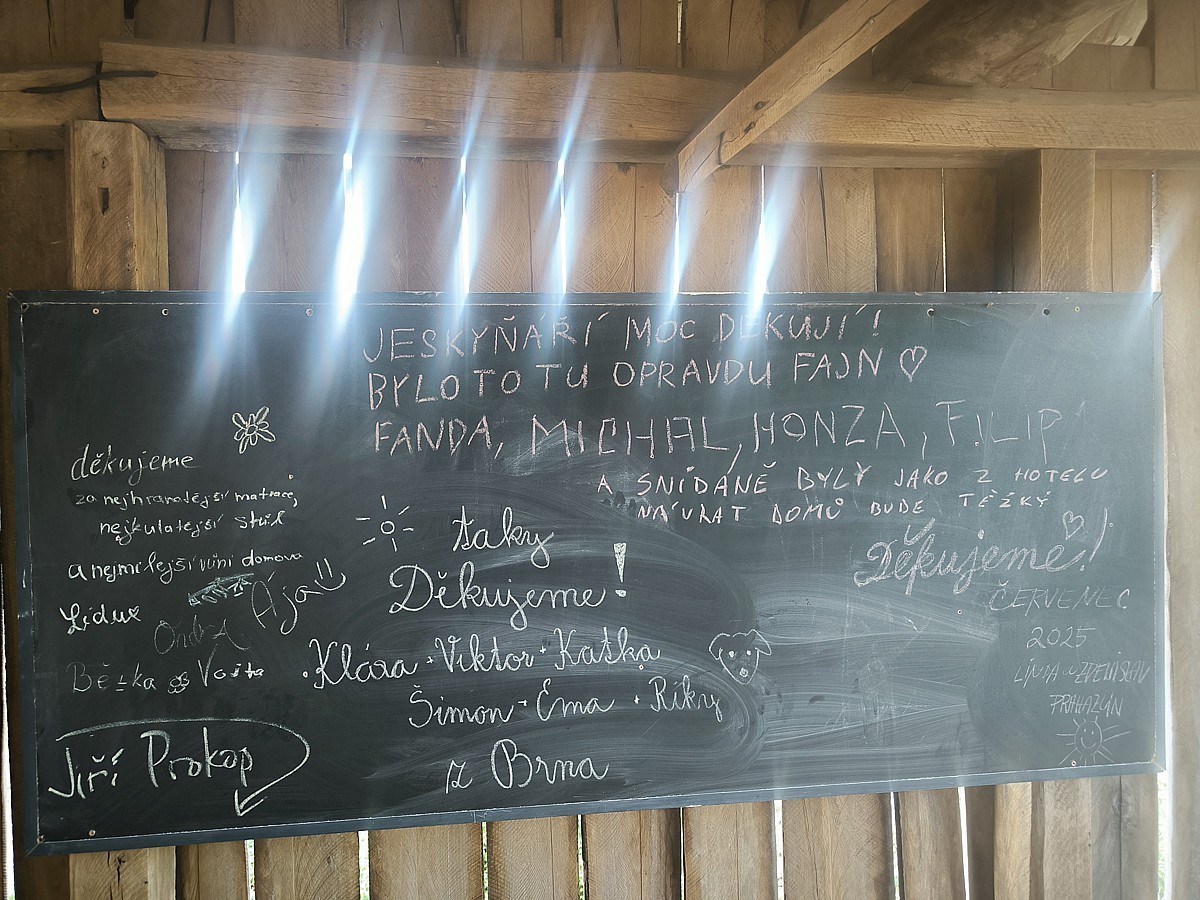 JESKYŇÁŘÍ MOC DĚKUJÍ!
BYLO TO TU OPRAVDU FAJN
FANDA, MICHAL, HONZA, FILIP
A SNÍDANĚ BYLY JAKO Z HOTELU
NÁVRAT DOMŮ BUDE TĚŽKÝ
děkujeme
za nejhranatější matrace,
nejkulatější stůl
a nejmilejší vůni domova
Ája
Liduš
Ondra
Běťka Vojta
Jiří Prokop
taky
Děkujeme!
Klára Viktor Kaťka
Šimon Ema Riky
z Brna
Děkujeme!
ČERVENEC
2025
LINDA ZDENISLAV